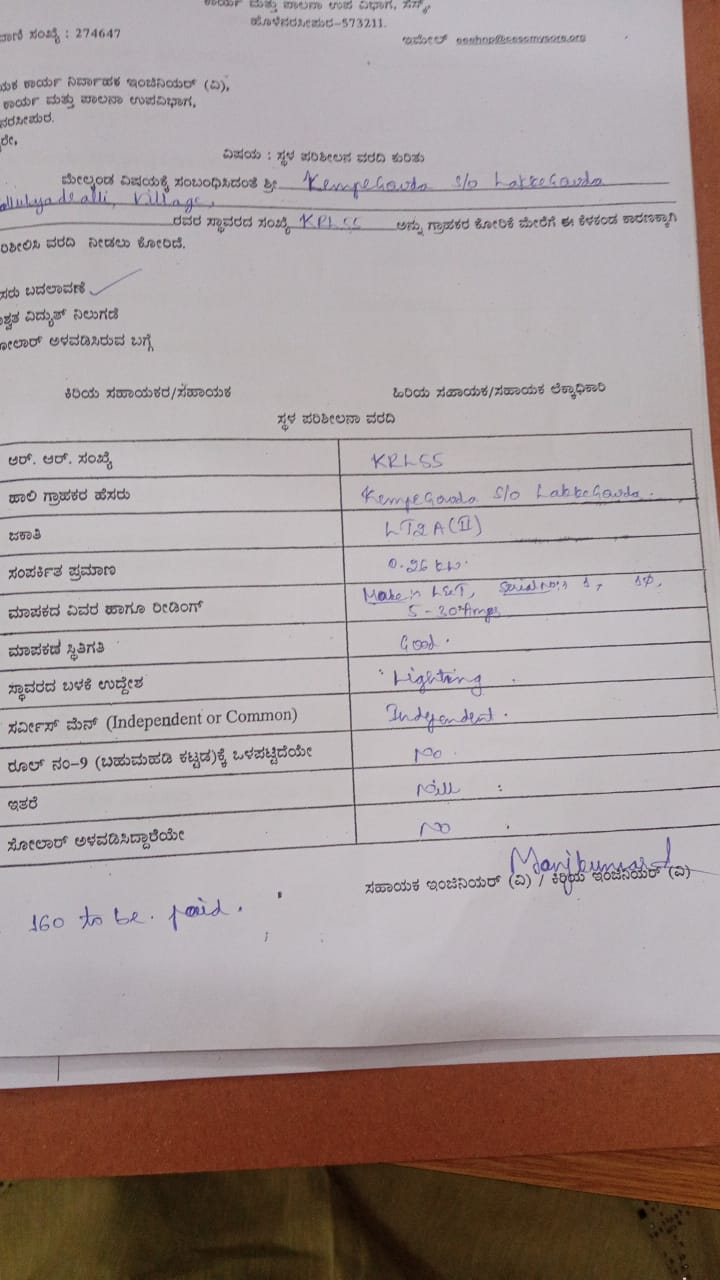 ಕಾರ್ಯ ಮತ್ತು ಪಾಲನಾ ಉಪ ವಿಭಾಗ, ಸೆಸ್ಕ್,
ಹೊಳೆನರಸೀಪುರ-573211.
ವಾಣಿ ಸಂಖ್ಯೆ : 274647
ಇಮೇಲ್
ಯಕ ಕಾರ್ಯ ನಿರ್ವಾಹಕ ಇಂಜಿನಿಯರ್ (ವಿ),
ಕಾರ್ಯ ಮತ್ತು ಪಾಲನಾ ಉಪವಿಭಾಗ,
ನರಸೀಪುರ.
ರೇ,
ವಿಷಯ : ಸ್ಥಳ ಪರಿಶೀಲನ ವರದಿ ಕುರಿತು
ಮೇಲ್ಕಂಡ ವಿಷಯಕ್ಕೆ ಸಂಬಂಧಿಸಿದಂತೆ ಶ್ರೀ KempeGowda S/o LakkeGowda
Village,
ರವರ ಸ್ಥಾವರದ ಸಂಖ್ಯೆ KRLSS ಅನ್ನು ಗ್ರಾಹಕರ ಕೋರಿಕೆ ಮೇರೆಗೆ ಈ ಕೆಳಕಂಡ ಕಾರಣಕ್ಕಾಗಿ
ರಿಶೀಲಿಸಿ ವರದಿ ನೀಡಲು ಕೋರಿದೆ.
ಸರು ಬದಲಾವಣೆ
ಶ್ವತ ವಿದ್ಯುತ್ ನಿಲುಗಡೆ
ೋಲಾರ್ ಅಳವಡಿಸಿರುವ ಬಗ್ಗೆ
ಕಿರಿಯ ಸಹಾಯಕರ/ಸಹಾಯಕ
ಹಿರಿಯ ಸಹಾಯಕ/ಸಹಾಯಕ ಲೆಕ್ಕಾಧಿಕಾರಿ
ಸ್ಥಳ ಪರಿಶೀಲನಾ ವರದಿ
ಆರ್. ಆರ್. ಸಂಖ್ಯೆ KRLSS
ಹಾಲಿ ಗ್ರಾಹಕರ ಹೆಸರು KempeGowda S/o LakkeGowda.
ಜಕಾತಿ LT2A(II)
ಸಂಪರ್ಕಿತ ಪ್ರಮಾಣ 0.26 KW.
ಮಾಪಕದ ವಿವರ ಹಾಗೂ ರೀಡಿಂಗ್ Make:n L&T, 1Φ,
5-20 Amps
ಮಾಪಕದ ಸ್ಥಿತಿಗತಿ Good.
ಸ್ಥಾವರದ ಬಳಕೆ ಉದ್ದೇಶ Lighting.
ಸರ್ವೀಸ್ ಮೆನ್ (Independent or Common) Independent.
ರೂಲ್ ನಂ-9 (ಬಹುಮಹಡಿ ಕಟ್ಟಡ)ಕ್ಕೆ ಒಳಪಟ್ಟಿದೆಯೇ No.
ಇತರೆ Nill
ಸೋಲಾರ್ ಅಳವಡಿಸಿದ್ದಾರೆಯೇ No
ಸಹಾಯಕ ಇಂಜಿನಿಯರ್ (ವಿ) / ಕಿರಿಯ ಇಂಜಿನಿಯರ್ (ವಿ)
160 to be. paid.